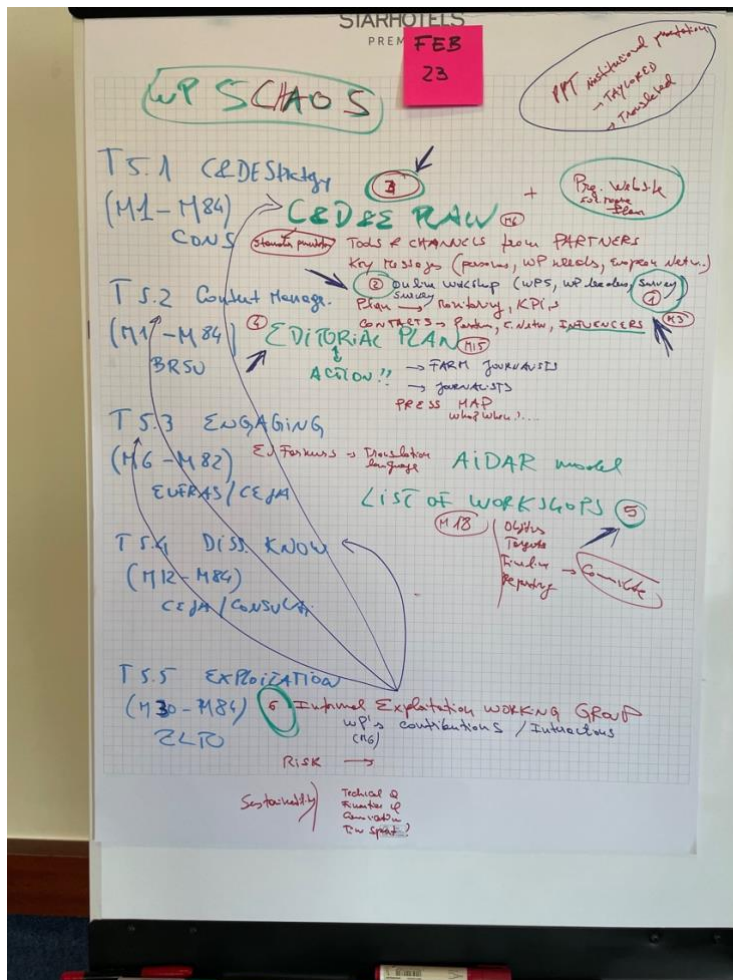 STARHOTELS
PREM
FEB
23
PPT institutional presentation
→ TAYLORED
→ Translated
WP 5 CHAOS
T 5.1 C&DE Strategy
(M1-M84)
CONS
3
C&D&E PLAN M6
+ Website
Tools & CHANNELS from PARTNERS
Key Messages (personas, WP needs, European Netw..)
2 Online workshop (WP5, WP leaders, Survey) 1
Survey
Plan → Monitoring, KPIs
M3
CONTACTS → Partn, E. Netw, INFLUENCERS
T 5.2 Content Manage.
(M1-M84)
BRSU
4 EDITORIAL PLAN M15
ACTION!! → FARM JOURNALISTS
→ JOURNALISTS
PRESS MAP
Who? When?....
T 5.3 ENGAGING
(M6-M82)
EUFRAS/CEJA
→ Translation
language
AIDAR model
LIST OF WORKSHOPS 5
M18
Targets
Timeline
Reporting
→
T 5.4 DISS. KNOW
(M12-M84)
CEJA/CONSULAI
T 5.5 EXPLOITATION
(M30-M84)
ZLTO
6 Informal Exploitation WORKING GROUP
WP's contributions / Interactions
(M6)
RISK →
Sustainability
Technical